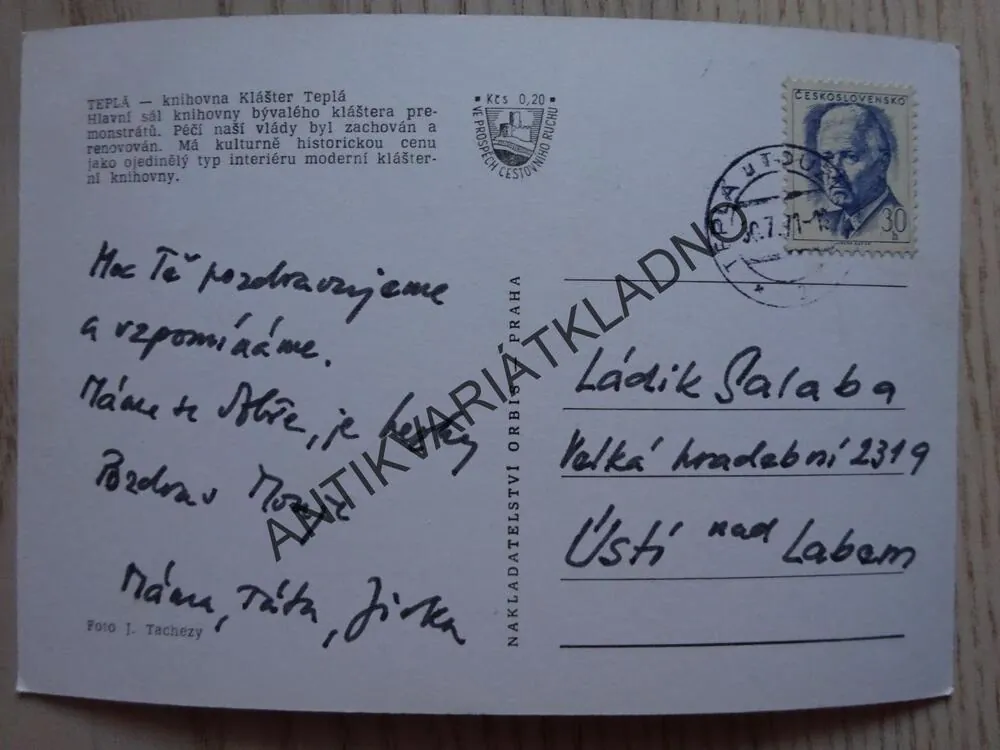 TEPLÁ — knihovna Klášter Teplá
Hlavní sál knihovny bývalého kláštera pre-
monstrátů. Péčí naší vlády byl zachován a
renovován. Má kulturně historickou cenu
jako ojedinělý typ interiéru moderní klášter-
ní knihovny.
Kčs 0,20
VE PROSPĚCH CESTOVNÍHO RUCHU
ČESKOSLOVENSKO
30
h
TEPLÁ u T
30.7.71-1
Moc Tě pozdravujeme
a vzpomínáme.
Máme se dobře, je hezky
Pozdravuj
Máma, Táta, Jirka
Foto J. Tachezy
NAKLADATELSTVÍ ORBIS - PRAHA
Ládik Salaba
Velká hradební 2319
Ústí nad Labem
ANTIKVARIÁTKLADNO